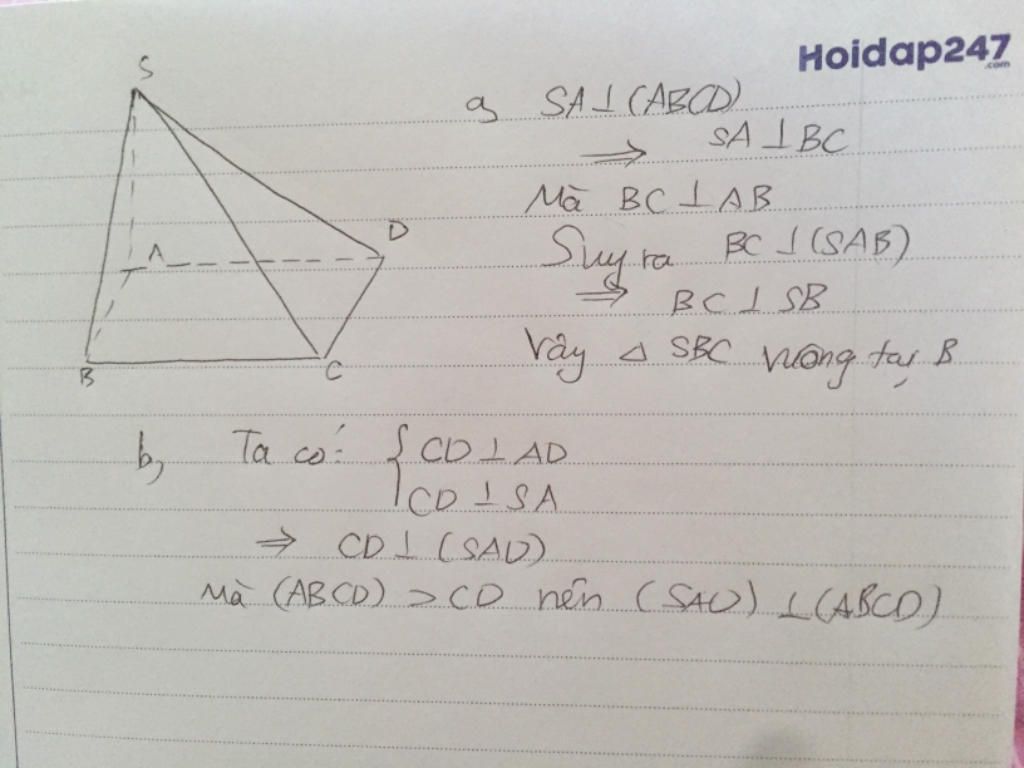 Hoidap247
.com
S
a, SA⊥(ABCD)
⇒ SA⊥BC
Mà BC⊥AB
Suy ra BC⊥(SAB)
⇒ BC⊥SB
Vậy △ SBC vuông tại B
A
D
B
C
b, Ta có: { CD⊥AD
CD⊥SA
⇒ CD⊥(SAD)
Mà (ABCD) ⊃ CD nên (SAD)⊥(ABCD)